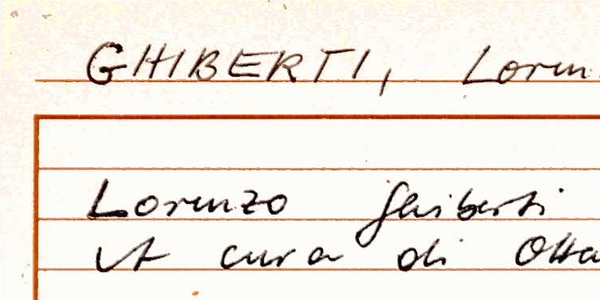 GHIBERTI, Loren
Lorenzo Ghiberti
A cura di Otta